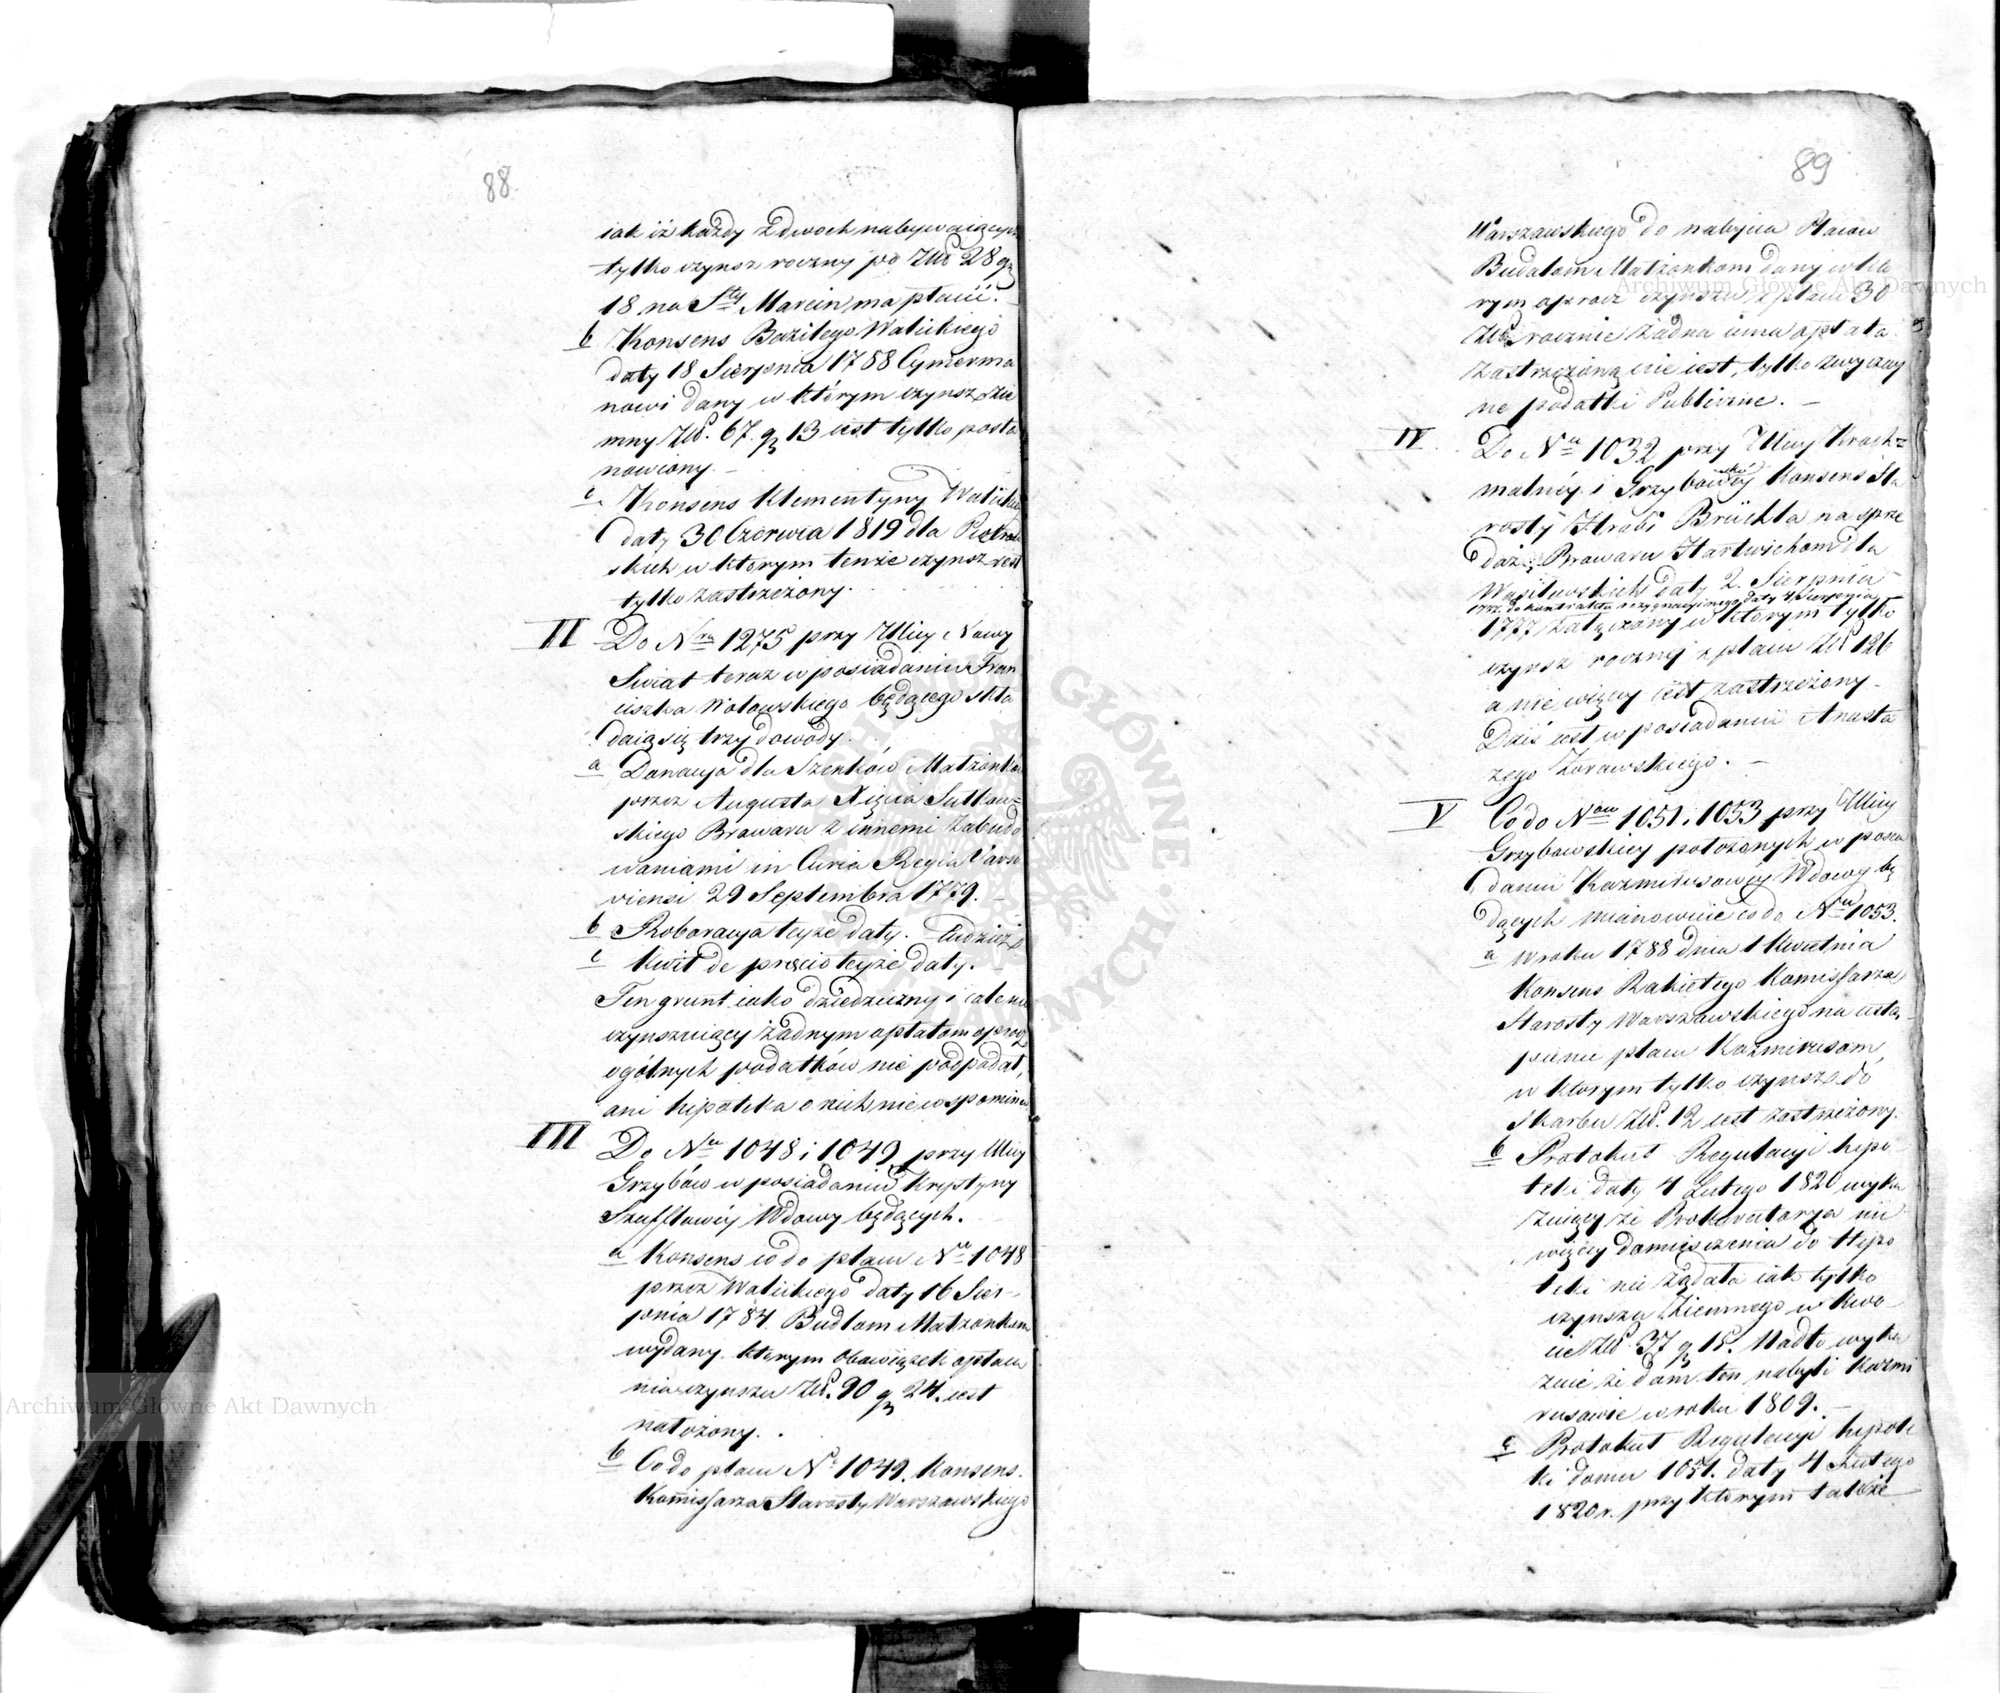 88
iak iż każdy z dwoch nabywaiących
tylko czynsz roczny po Złł 28 gr
18 na Sty Marcin ma płacić.
b Konsens Bazilego Walickiego
daty 18 Sierpnia 1788 Cymerma
nowi dany w którym czynsz zie
mny Złł. 67. gr 13 iest tylko posta
nowiony. –
c. Konsens Klementyny Walickiey
daty 30 Czerwca 1819 dla Piotrow
skich w ktorym tenże czynsz iest
tylko zastrzeżony.
II Do Nru 1275 przy Ulicy Nowy
Swiat teraz w posiadaniu Fran
ciszka Wołowskiego będącego skła
daią się trzy dowody.
a Donacya dla Szenków Małżonków
przez Augusta Xięcia Sułkow=
skiego Browaru z innemi zabudo
waniami in Curia Regia Varsa
viensi 29 Septembra 1779. –
b Roboracya teyże daty. Tudzież
c Kwit de precio teyże daty. –
Ten grunt iako dziedziczny i całe nie
czynszuiący żadnym opłatom oprocz
ogólnych podatków nie podpadał,
ani hipoteka o nich nie wspomina
III Do Nru 1048 i 1049 przy Ulicy
Grzybów w posiadaniu Krystyny
Szufflowéy Wdowy będących.
a Konsens co do placu Nru 1048
przez Walickiego daty 16 Sier-
pnia 1784. Budlom Małżonkom
wydany. ktorym obowiązek opłace
nia czynszu Złł. 90 gr 24. iest
nałożony. .
b Co do placu Nr 1049. Konsens.
Kommissarza Starosty Warszawskiego
89
Warszawskiego do nabycia Placu
Budalom Małżonkom dany w któ
rym oprocz czynszu z placu 30
Złł rocznie żadna inna opłata
zastrzeżoną nie iest, tylko zwyczay
ne podatki Publiczne. –
IV. Do Nru 1032 przy Ulicy Kroch=
malnéy i Grzybowskiéy Konsens Sta
rosty Hrabi Brüchla na sprze
daż Browaru Hartwichom dla
Wasilewskich daty 2. Sierpnia
1772. do kontraktu rezygnacyinego daty 4 Sierpnia
1777 załączony w ktorym tylko
czynsz roczny z placu Złł 126
a nie więcey iest zastrzeżony –
Dziś iest w posiadaniu Anasta
zego Żorawskiego. –
V Co do Nrow 1051 i 1053 przy Ulicy
Grzybowskiey położonych w posia
daniu Kazmirusowéy Wdowy bę
dących mianowicie co do Nru 1053.
a w roku 1788 dnia 1 Kwietnia
Konsens Rakietego Komissarza
Starosty Warszawskiego na ustą
pienie placu Kazmirusom,
w ktorym tylko czynsz do
Skarbu Złł. 12 iest zastrzeżony.
b Protokuł Regulacyi hipo
teki daty 4 Lutego 1820 wyka
zuiący że Prokuratorya nic
więcey domieszczenia do Hipo
teki nie żądała iak tylko
czynszu Ziemnego w kwo
cie Złł 37 gr 15. Nadto wyka
zuie że dom ten nabyli Kazmi
rusowie w roku 1809. –
c Protokuł Regulacyi hipote
ki domu 1051. daty 4 Lutego
1820 r. przy ktorym także
Archiwum Główne Akt Dawnych
Archiwum Główne Akt Dawnych